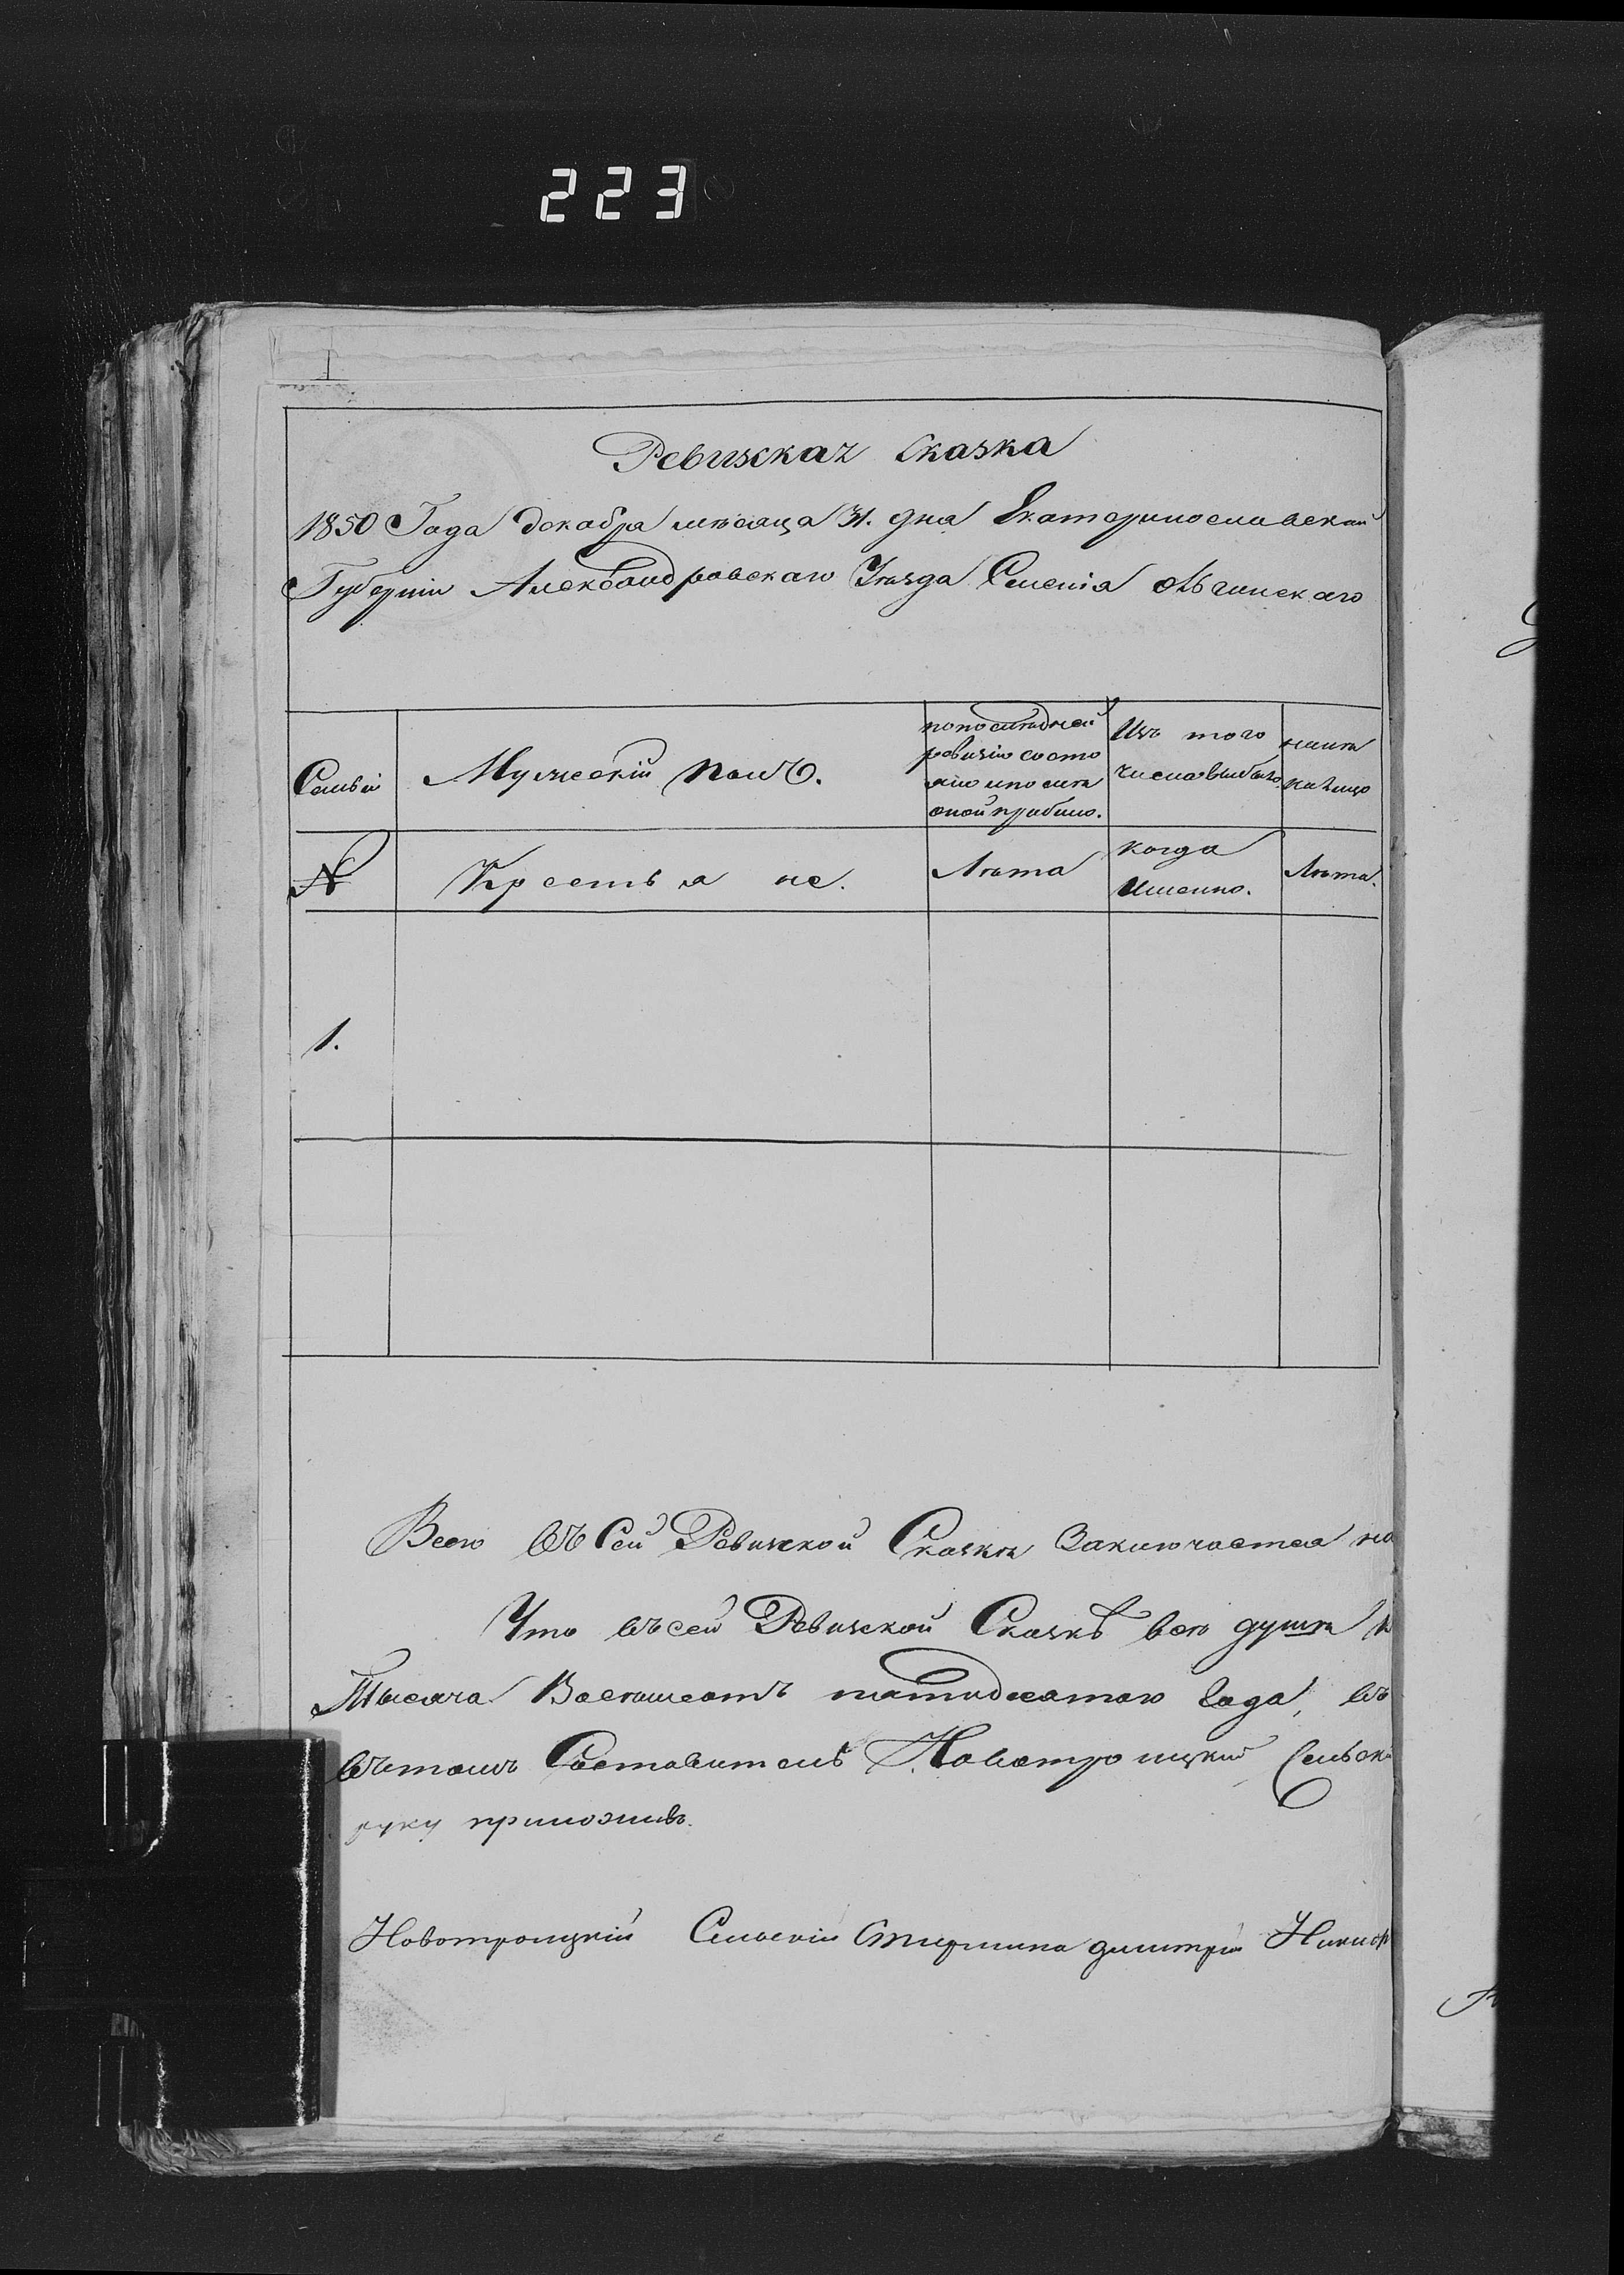 223
1
Ревизская Сказка
1850 Года декабря мѣсяца 31. дня Екатеринославской
Губерніи Александровскаго Уѣзда Селенія
Семьи
Мужескій полъ.
попослѣдней
ревизіи состо
яло ипослѣ
оной прибыло.
Изъ того
числа выбыло.
нынѣ
налицо
№
Крестьяне.
Лѣта
когда
Именно.
Лѣта.
1.
Всего въ Сей Ревизской Сказкѣ Заключается на
Что въсей Ревизской Сказкѣ всѣ душѣ
Тысяча Восемьсотъ пятидесятаго Года, въ
вътомъ Составитель Новотроицкій Сельскі
руку приложивъ.
Новотроицкій Сельскій Старшина димитрій Никиф